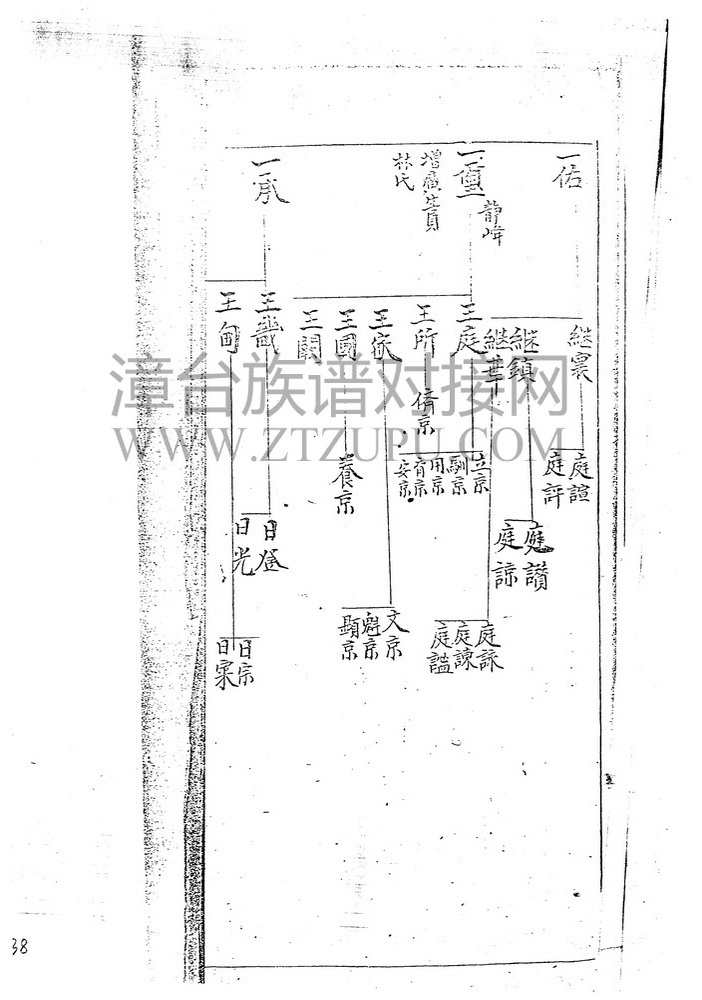 一佑
一璽
靜峰
增廣生員
林氏
一承
繼裏
繼鎮
繼華
王庭
王所
王家
王國
王闕
王畿
王甸
庭諠
庭評
庭讚
庭諒
庭詠
庭諫
庭謐
立京
馴京
用京
育京
安京
脩京
文京
魁京
顯京
養京
日登
日光
日宗
日寀
漳台族谱对接网
WWW.ZTZUPU.COM
38